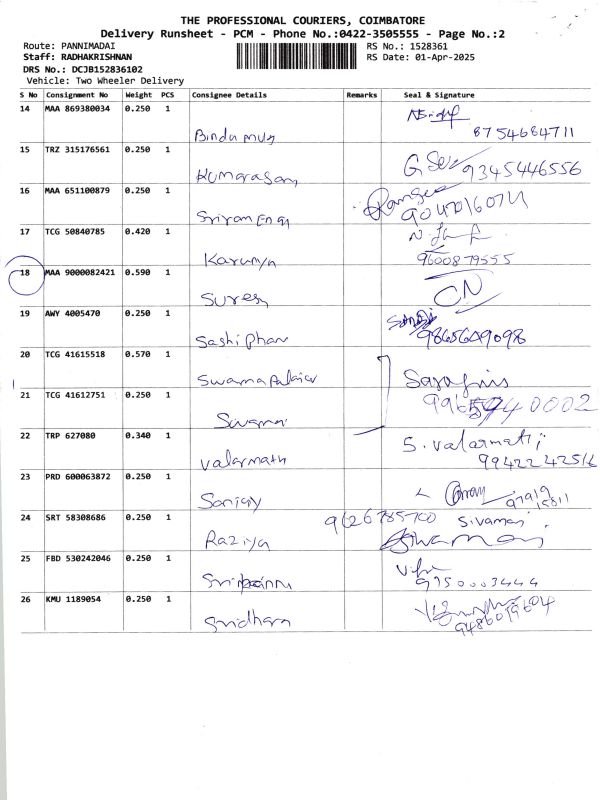 THE PROFESSIONAL COURIERS, COIMBATORE
Delivery Runsheet - PCM - Phone No.:0422-3505555 - Page No.:2
Route: PANNIMADAI RS No.: 1528361
Staff: RADHAKRISHNAN RS Date: 01-Apr-2025
DRS No.: DCJB152836102
Vehicle: Two Wheeler Delivery
S No Consignment No Weight PCS Consignee Details Remarks Seal & Signature
14 MAA 869380034 0.250 1
Bindu 8754684711
15 TRZ 315176561 0.250 1
Kumarasamy 9345446556
16 MAA 651100879 0.250 1
Sriram Engg
17 TCG 50840785 0.420 1
Karunya 9600879555
18 MAA 9000082421 0.590 1
Suresh CN
19 AWY 4005470 0.250 1
Sashi Phan 9865649098
20 TCG 41615518 0.570 1
Swarna
21 TCG 41612751 0.250 1
Swarna
22 TRP 627080 0.340 1
Valarmath S. Valarmathi
9942242516
23 PRD 600063872 0.250 1
Sanjay 97919
15811
24 SRT 58308686 0.250 1
Raziya 9626785700 Sivamani
25 FBD 530242046 0.250 1
9750003444
26 KMU 1189054 0.250 1
Sridharn 9486019604